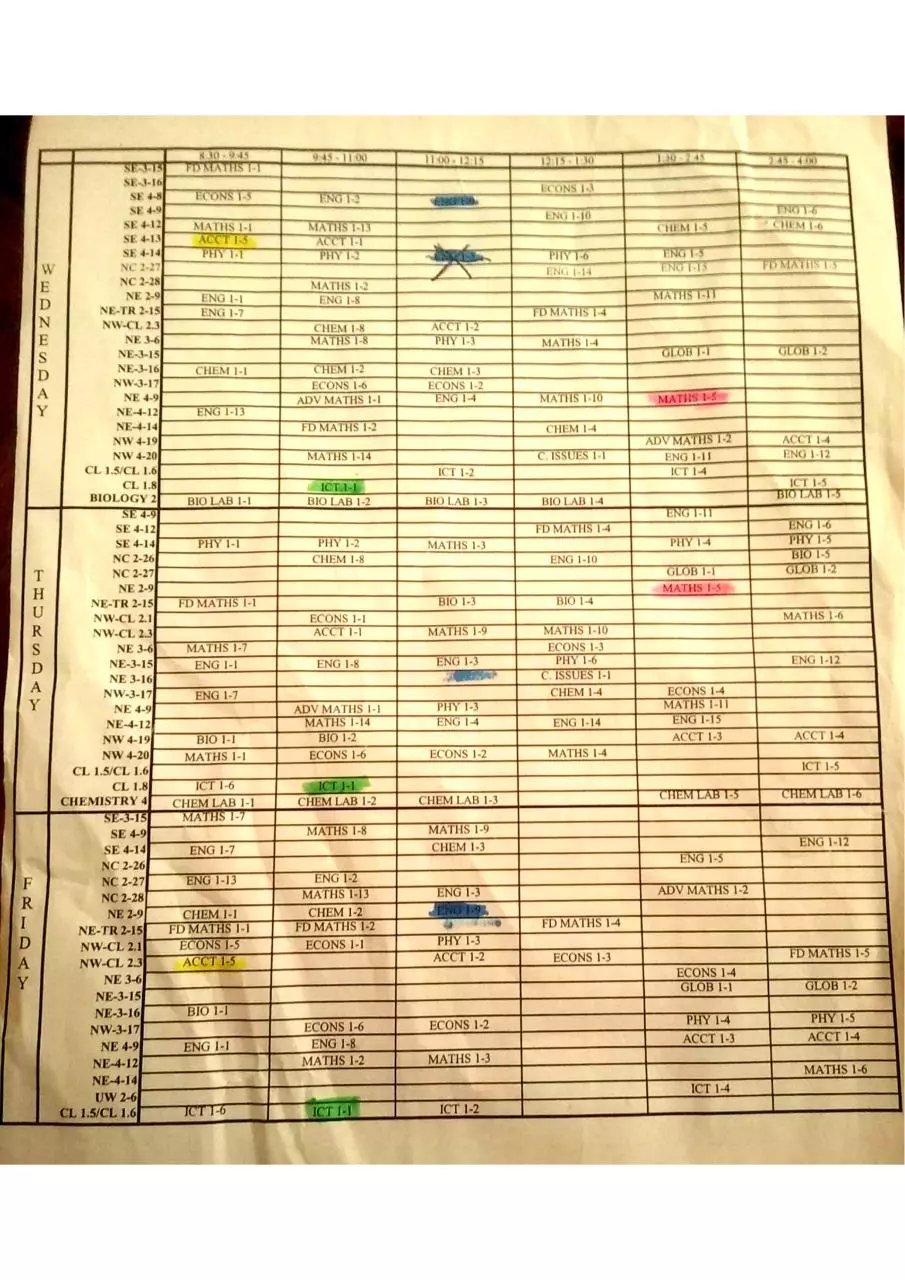 8:30 - 9:45 9:45 - 11:00 11:00 - 12:15 12:15 - 1:30 1:30 - 2:45 2:45 - 4:00
WEDNESDAY
SE-3-15 FD MATHS 1-1
SE-3-16 ECONS 1-3
SE 4-8 ECONS 1-5 ENG 1-2 ENG 1-9
SE 4-9 ENG 1-10 ENG 1-6
SE 4-12 MATHS 1-1 MATHS 1-13 CHEM 1-5 CHEM 1-6
SE 4-13 ACCT 1-5 ACCT 1-1
SE 4-14 PHY 1-1 PHY 1-2 PHY 1-6 ENG 1-5
NC 2-27 ENG 1-14 ENG 1-15 FD MATHS 1-5
NC 2-28 MATHS 1-2
NE 2-9 ENG 1-1 ENG 1-8 MATHS 1-11
NE-TR 2-15 ENG 1-7 FD MATHS 1-4
NW-CL 2.3 CHEM 1-8 ACCT 1-2
NE 3-6 MATHS 1-8 PHY 1-3 MATHS 1-4
NE-3-15 GLOB 1-1 GLOB 1-2
NE-3-16 CHEM 1-1 CHEM 1-2 CHEM 1-3
NW-3-17 ECONS 1-6 ECONS 1-2
NE 4-9 ADV MATHS 1-1 ENG 1-4 MATHS 1-10 MATHS 1-5
NE-4-12 ENG 1-13
NE-4-14 FD MATHS 1-2 CHEM 1-4
NW 4-19 ADV MATHS 1-2 ACCT 1-4
NW 4-20 MATHS 1-14 C. ISSUES 1-1 ENG 1-11 ENG 1-12
CL 1.5/CL 1.6 ICT 1-2 ICT 1-4
CL 1.8 ICT 1-1 ICT 1-5
BIOLOGY 2 BIO LAB 1-1 BIO LAB 1-2 BIO LAB 1-3 BIO LAB 1-4 BIO LAB 1-5
THURSDAY
SE 4-9 ENG 1-11
SE 4-12 FD MATHS 1-4 ENG 1-6
SE 4-14 PHY 1-1 PHY 1-2 MATHS 1-3 PHY 1-4 PHY 1-5
NC 2-26 CHEM 1-8 ENG 1-10 BIO 1-5
NC 2-27 GLOB 1-1 GLOB 1-2
NE 2-9 MATHS 1-5
NE-TR 2-15 FD MATHS 1-1 BIO 1-3 BIO 1-4
NW-CL 2.1 ECONS 1-1 MATHS 1-6
NW-CL 2.3 ACCT 1-1 MATHS 1-9 MATHS 1-10
NE 3-6 MATHS 1-7 ECONS 1-3
NE-3-15 ENG 1-1 ENG 1-8 ENG 1-3 PHY 1-6 ENG 1-12
NE 3-16 C. ISSUES 1-1
NW-3-17 ENG 1-7 CHEM 1-4 ECONS 1-4
NE 4-9 ADV MATHS 1-1 PHY 1-3 MATHS 1-11
NE-4-12 MATHS 1-14 ENG 1-4 ENG 1-14 ENG 1-15
NW 4-19 BIO 1-1 BIO 1-2 ACCT 1-3 ACCT 1-4
NW 4-20 MATHS 1-1 ECONS 1-6 ECONS 1-2 MATHS 1-4
CL 1.5/CL 1.6 ICT 1-5
CL 1.8 ICT 1-6 ICT 1-1
CHEMISTRY 4 CHEM LAB 1-1 CHEM LAB 1-2 CHEM LAB 1-3 CHEM LAB 1-5 CHEM LAB 1-6
FRIDAY
SE-3-15 MATHS 1-7
SE 4-9 MATHS 1-8 MATHS 1-9
SE 4-14 ENG 1-7 CHEM 1-3 ENG 1-12
NC 2-26 ENG 1-5
NC 2-27 ENG 1-13 ENG 1-2
NC 2-28 MATHS 1-13 ENG 1-3 ADV MATHS 1-2
NE 2-9 CHEM 1-1 CHEM 1-2 ENG 1-9
NE-TR 2-15 FD MATHS 1-1 FD MATHS 1-2 FD MATHS 1-4
NW-CL 2.1 ECONS 1-5 ECONS 1-1 PHY 1-3 FD MATHS 1-5
NW-CL 2.3 ACCT 1-5 ACCT 1-2 ECONS 1-3
NE 3-6 ECONS 1-4
NE-3-15 GLOB 1-1 GLOB 1-2
NE-3-16 BIO 1-1
NW-3-17 ECONS 1-6 ECONS 1-2 PHY 1-4 PHY 1-5
NE 4-9 ENG 1-1 ENG 1-8 ACCT 1-3 ACCT 1-4
NE-4-12 MATHS 1-2 MATHS 1-3
NE-4-14 MATHS 1-6
UW 2-6 ICT 1-4
CL 1.5/CL 1.6 ICT 1-6 ICT 1-1 ICT 1-2